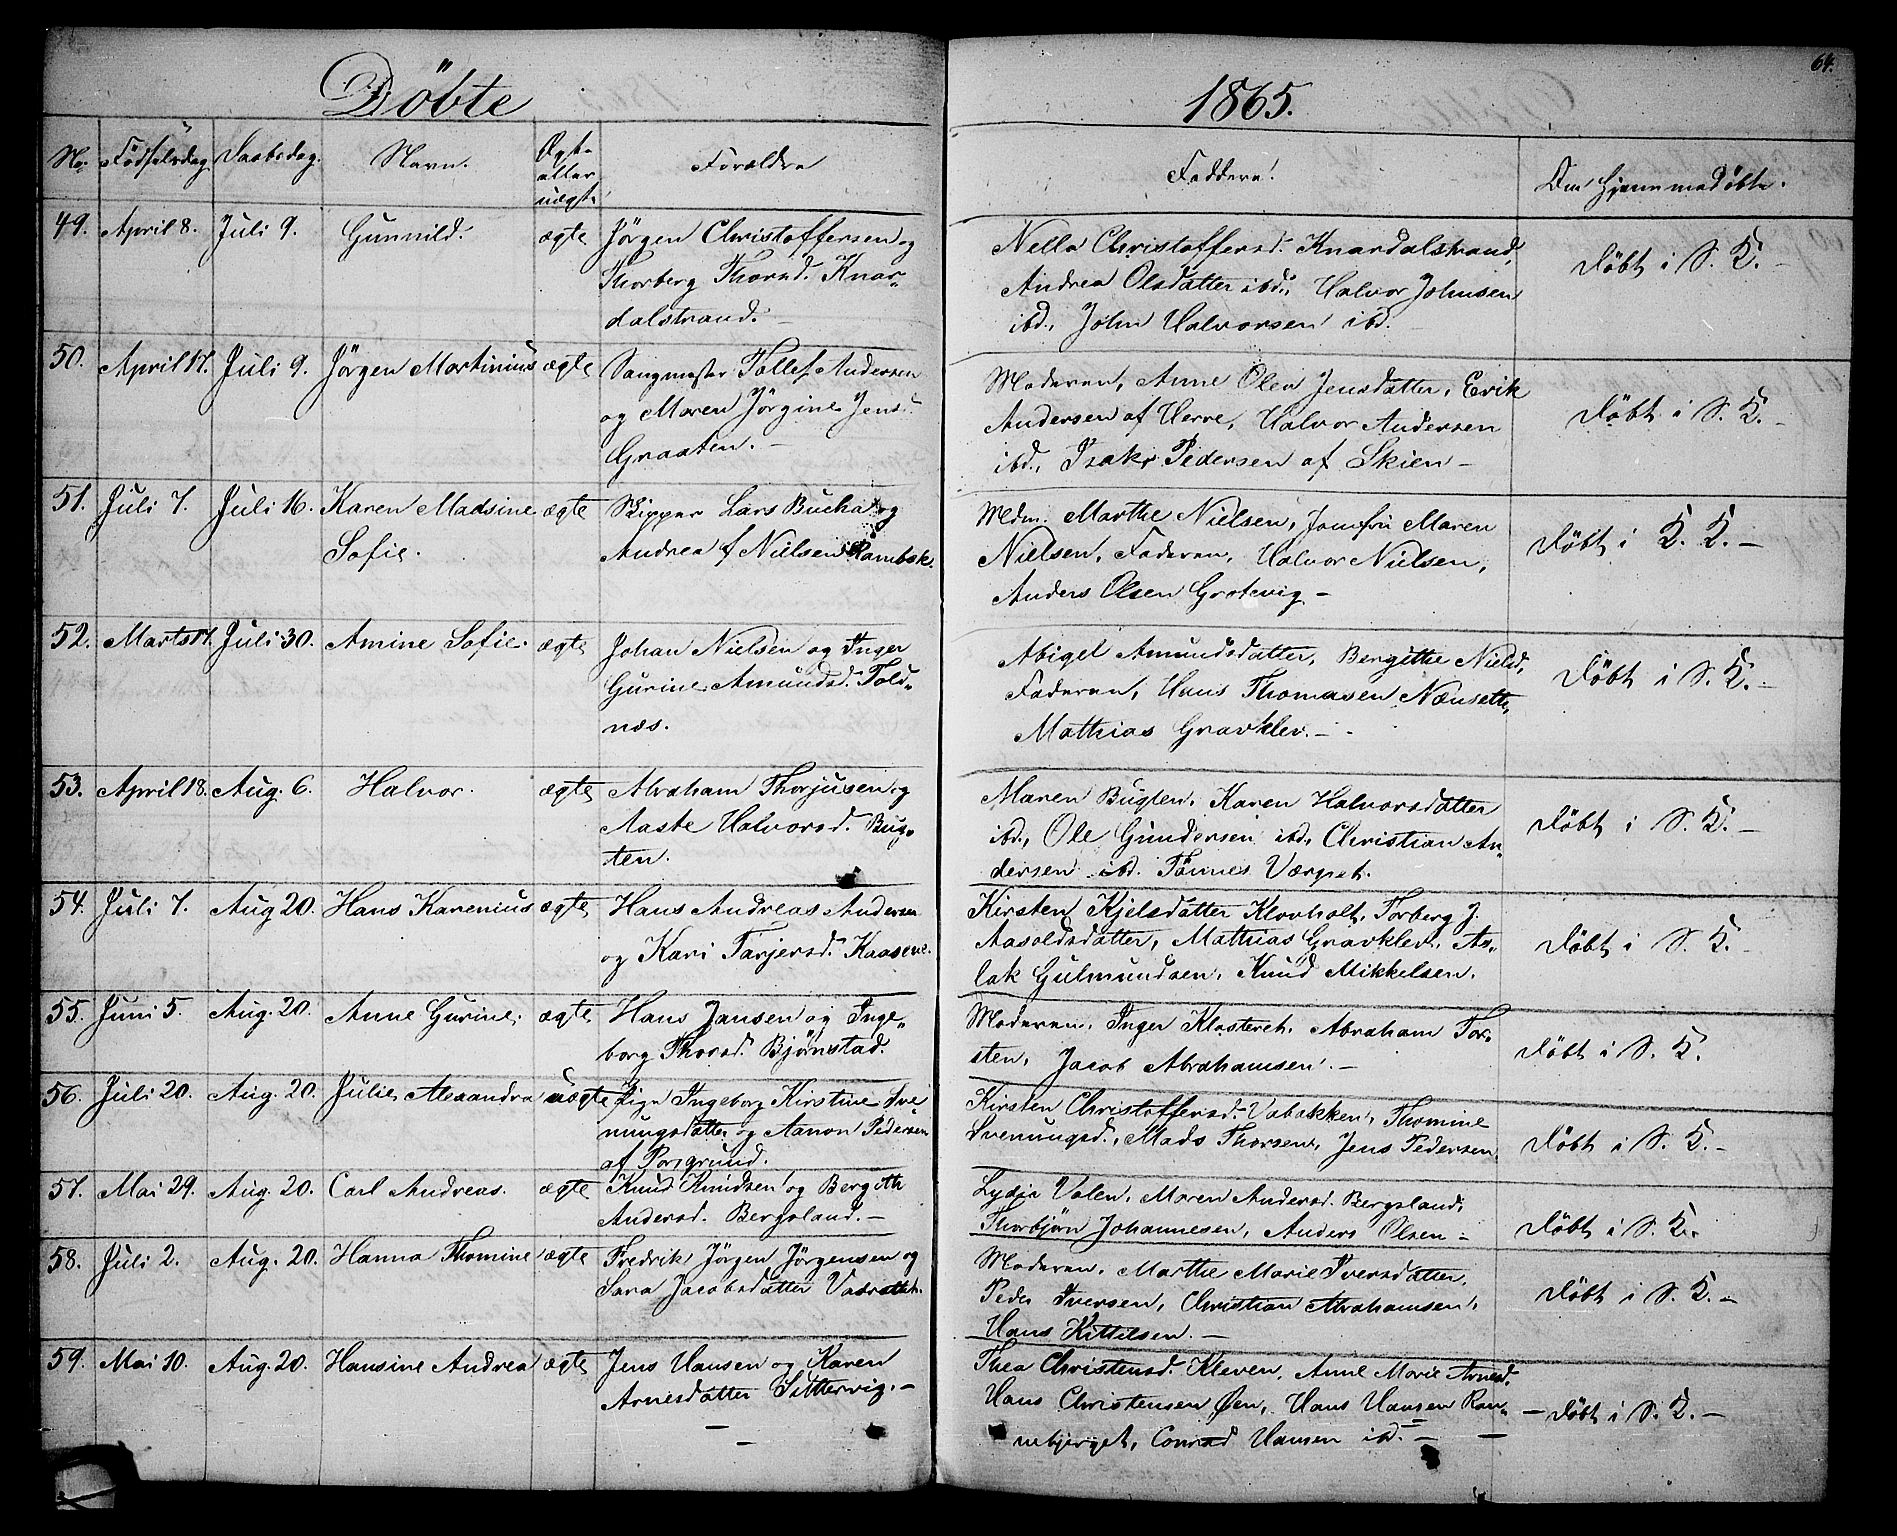 Döbte
1865.
64.
No. Fødselsdag Daabsdag. Navn. Ægte eller uægte Forældre
Faddere. Om hjemmedøbte.
49. April 8. Juli 9. Gunnild. ægte Jörgen Christoffersen og
Thorberg Thorsd. Knar-
dalstrand.
Nella Christoffersd. Knardalstrand,
Andrea Olsdatter ibd., Halvor Johnsen
ibd., John Halvorsen ibd.
Döbt i S. K. -
50. April 17. Juli 9. Jörgen Martinius ægte Sangmester Tollef Andersen
og Maren Jörgine Jens.
Graaten. -
Moderen, Anne Olea Jensdatter, Eerik
Andersen af Herre, Halvor Andersen
ibd., Isak Pedersen af Skien -
Döbt i S. K. -
51. Juli 7. Juli 16. Karen Madsine ægte Skipper Lars Bucha og
Sofie. Andrea f Nielsen Rambek.
Mdm. Marthe Nielsen, Jomfru Maren
Nielsen, Faderen, Halvor Nielsen,
Anders Olsen Grotevig -
Döbt i K. K. -
52. Marts 17. Juli 30. Amine Sofie. ægte Johan Nielsen og Inger
Gurine Amundsd. Told-
næs.
Abigel Amundsdatter, Bergithe Nielsd.
Faderen, Hans Thomasen Nænsette,
Mathias Gravklev. -
Döbt i S. K. -
53. April 18. Aug. 6. Halvor. ægte Abraham Thorjusen og
Aaste Halvorsd. Bug-
ten.
Maren Bugten, Karen Halvorsdatter
ibd., Ole Gundersen ibd., Christian An-
dersen ibd. Tönnes Værpet.
Döbt i S. K. -
54. Juli 7. Aug 20. Hans Karenius ægte Hans Andreas Andersen
og Kari Tarjersd. Kaasene.
Kirsten Kjelsdatter Klovholt, Torberg J.
Aasoldsdatter, Mathias Gravklev, As-
lak Gulmundsen, Knud Mikkelsen.
Döbt i S. K. -
55. Juni 5. Aug. 20. Anne Gurine. ægte Hans Jansen og Inge-
borg Thorsd. Bjørnstad.
Moderen, Inger Klosteret, Abraham Tor-
sten, Jacob Abrahamsen. -
Döbt i S. K.
56. Juli 20. Aug. 20. Julie Alexandra uægte Pige Ingeborg Kirstine Sve
nungsdatter og Aanon Pedersen
af Porsgrund.
Kirsten Christoffersd. Vabakken, Thomine
Svenungsd., Mads Thorsen, Jens Pedersen
Döbt i S. K. -
57. Mai 29. Aug. 20. Carl Andreas. ægte Knud Knudsen og Bergith
Andersd. Bergsland. -
Lydia Valen, Maren Andersd. Bergsland,
Thorbjörn Johannesen, Anders Olsen -
Döbt i S. K.
58. Juli 2. Aug. 20. Hanna Thomine ægte Fredrik Jörgen Jörgensen og
Sara Jacobsdatter Vadrette.
Moderen, Marthe Marie Iversdatter,
Peder Iversen, Christian Abrahamsen,
Hans Kittilsen. -
Döbt i S. K. -
59. Mai 10. Aug. 20. Hansine Andrea ægte Jens Hansen og Karen
Arnesdatter Sættervig. -
Thea Christensd. Kleven, Anne Marie Arnesd.
Hans Christensen Øen, Hans Hansen Røn-
nebjerget, Conrad Hansen ibd. -
Döbt i S. K. -